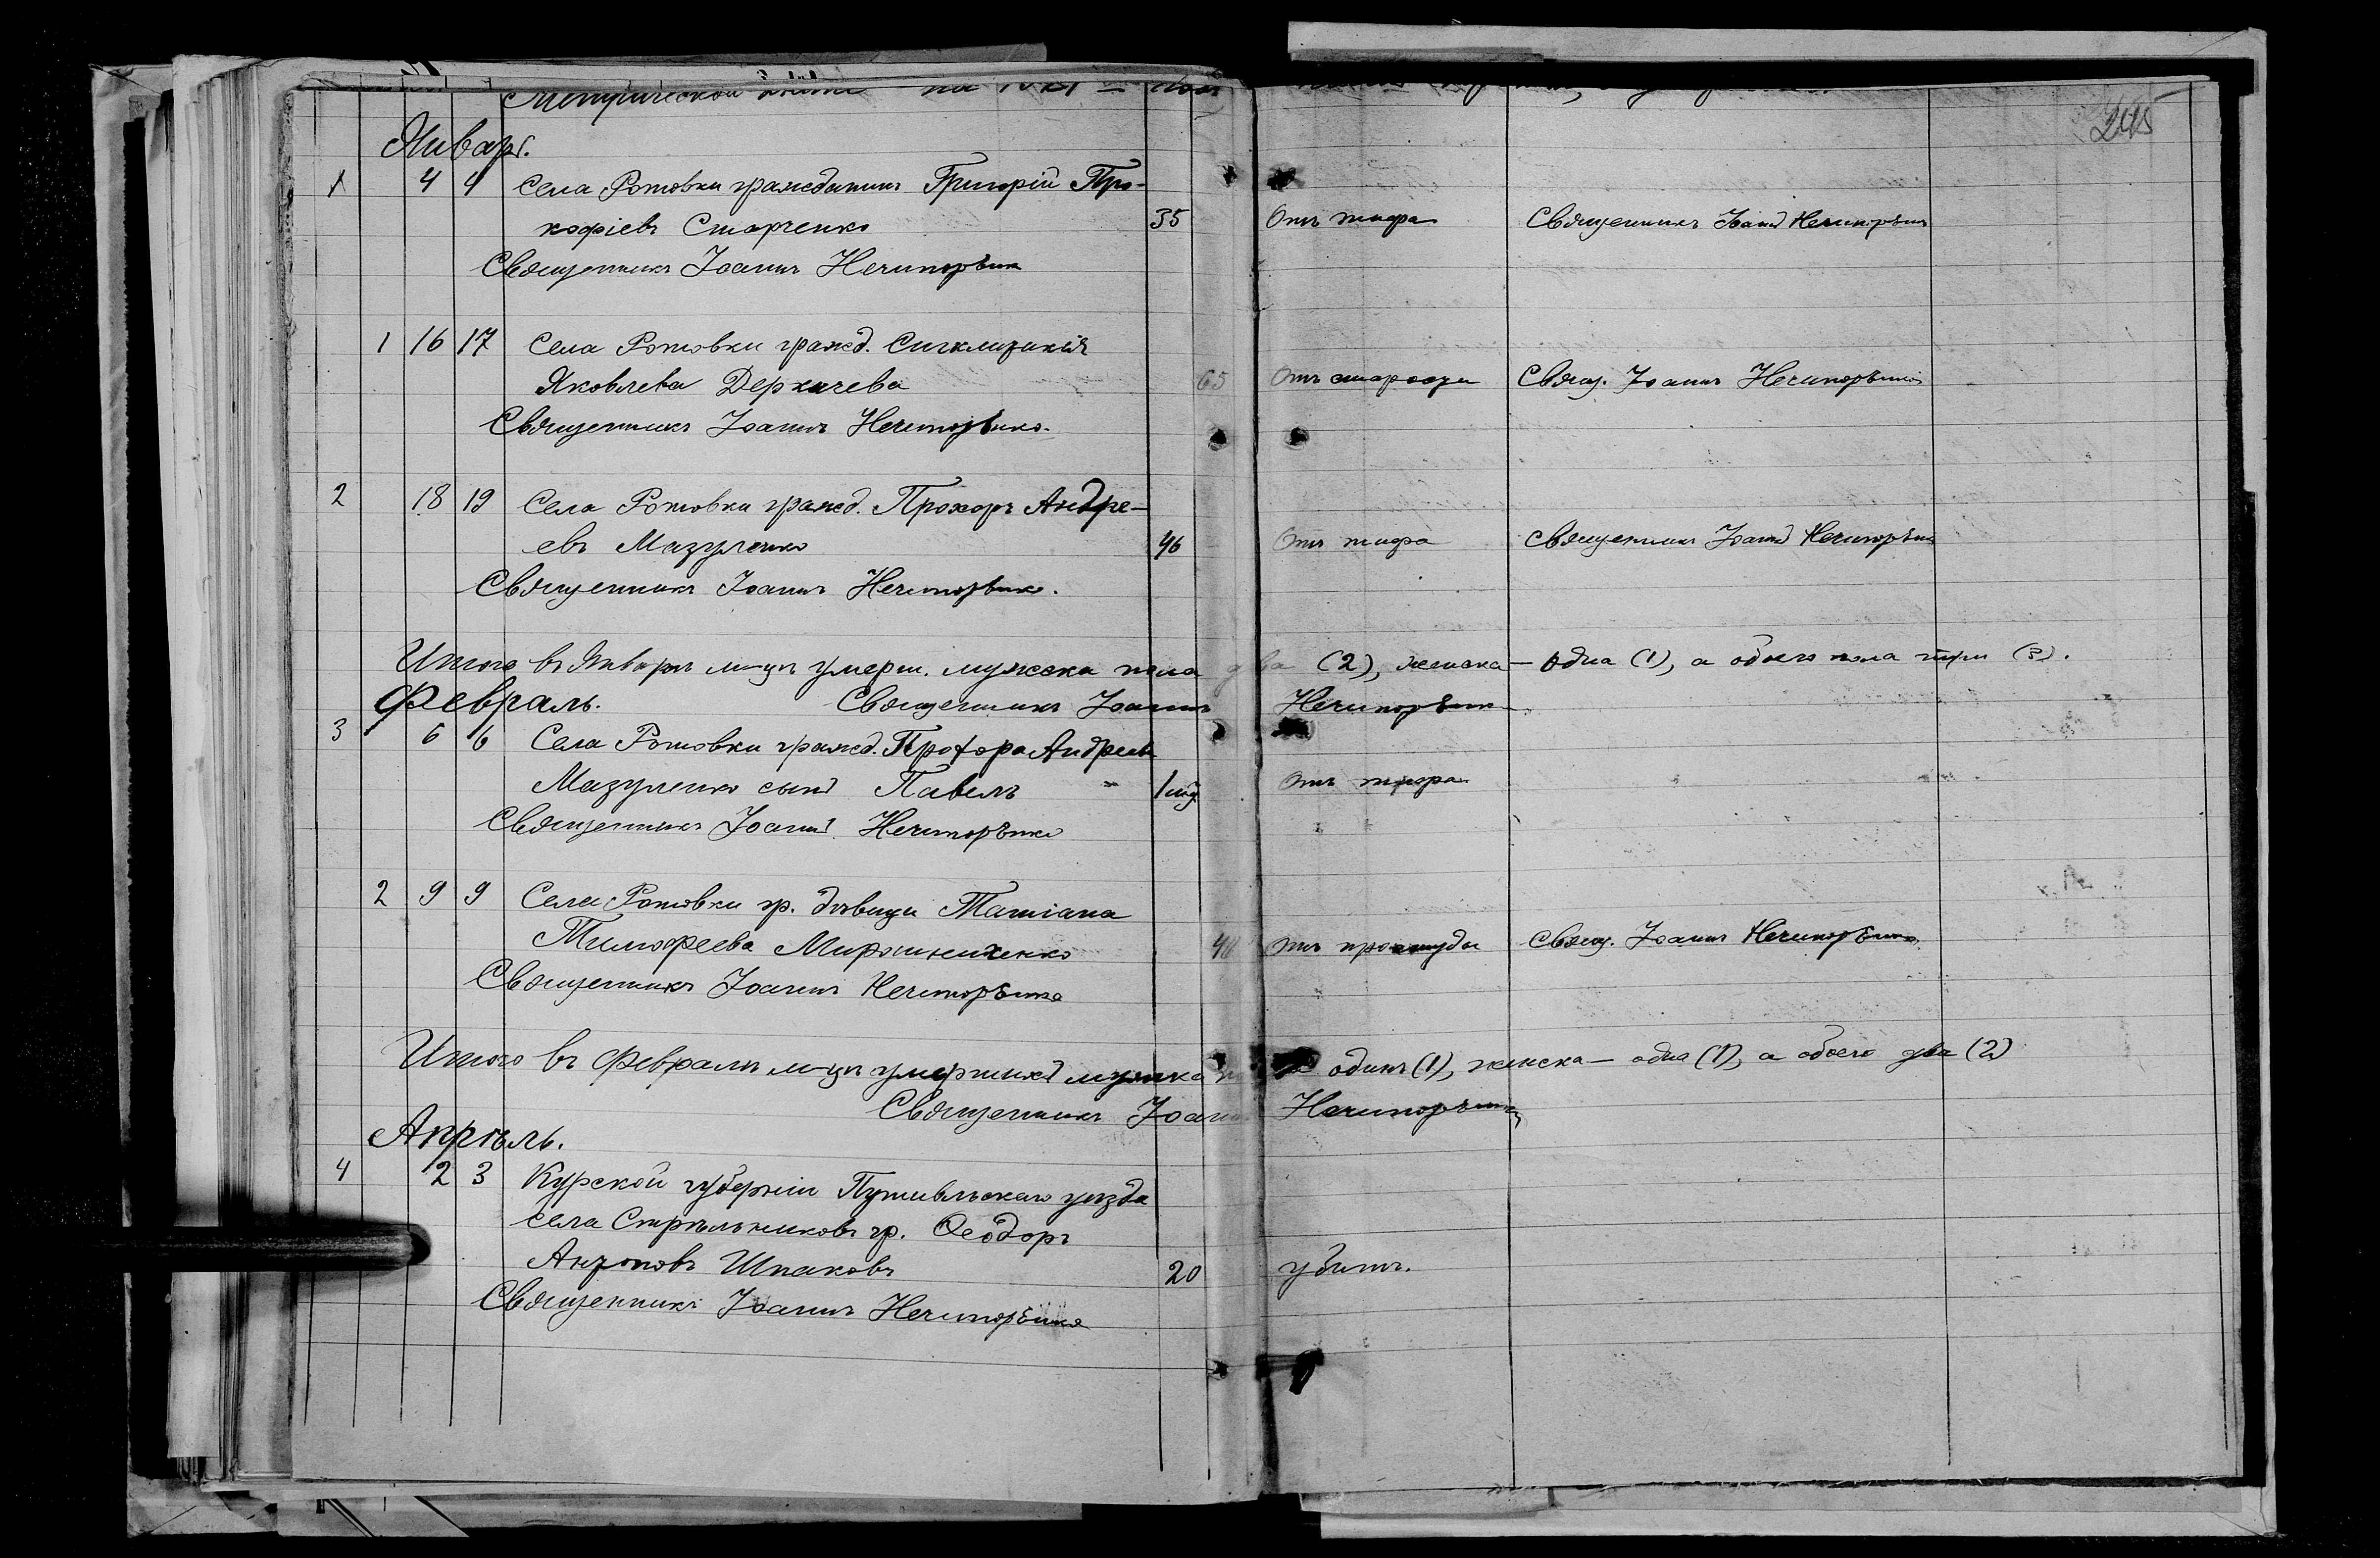 Метрической книги на
245
Январь.
1 4 4 Села Ротовки гражданинъ Григорій Про-
кофіевъ Старченко 35 Отъ тифа Священникъ Іоаннъ Нечипорѣнко
Священникъ Іоаннъ Нечипорѣнко
1 16 17 Села Ротовки гражд. Сигклитикія
Яковлева Деркачева 65 Отъ старости Свящ. Іоаннъ Нечипорѣнко
Священникъ Іоаннъ Нечипорѣнко.
2 18 19 Села Ротовки гражд. Прохоръ Андре-
евъ Мазуленко 46 Отъ тифа Священникъ Іоаннъ Нечипорѣнко
Священникъ Іоаннъ Нечипорѣнко.
Итого въ Январѣ м-цѣ умерш. мужска пола два (2), женска — одна (1), а обоего пола три (3).
Февраль. Священникъ Іоаннъ Нечипорѣнко
3 6 6 Села Ротовки гражд. Прохора Андреева
Мазуленко сынъ Павелъ 1 год Отъ тифа
Священникъ Іоаннъ Нечипорѣнко
2 9 9 Села Ротовки гр. дѣвица Татіана
Тимофеева Мирошниченко отъ простуды Свящ. Іоаннъ Нечипорѣнко
Священникъ Іоаннъ Нечипорѣнко
Итого въ Февралѣ м-цѣ умершихъ мужска одинъ (1), женска — одна (1), а обоего два (2)
Священникъ Іоаннъ Нечипорѣнко
Апрѣль.
4 2 3 Курской губерніи Путивльскаго уѣзда
села Стрѣльниковъ гр. Ѳеодоръ
Шпаковъ 20 убитъ.
Священникъ Іоаннъ Нечипорѣнко